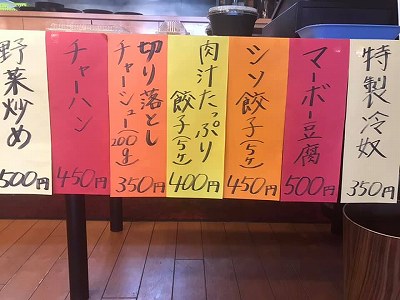 特製冷奴
350円
マーボー豆腐
500円
シソ餃子(5ケ)
450円
肉汁たっぷり
餃子(5ケ)
400円
切り落とし
チャーシュー(200g)
350円
チャーハン
450円
野菜炒め
500円